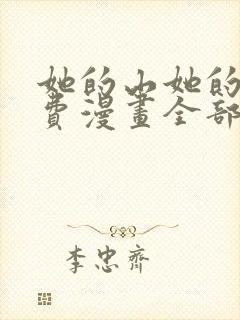 她的山她的
费漫畫全部
李忠齊